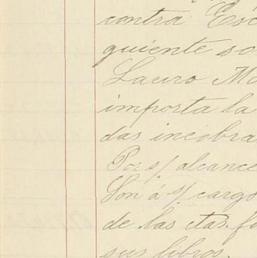 contra Esc
quiente so
Lauro M
importa la
das incobra
Por s/ alcance
Son á s/ cargo
de las ctas. fa
sus libros.